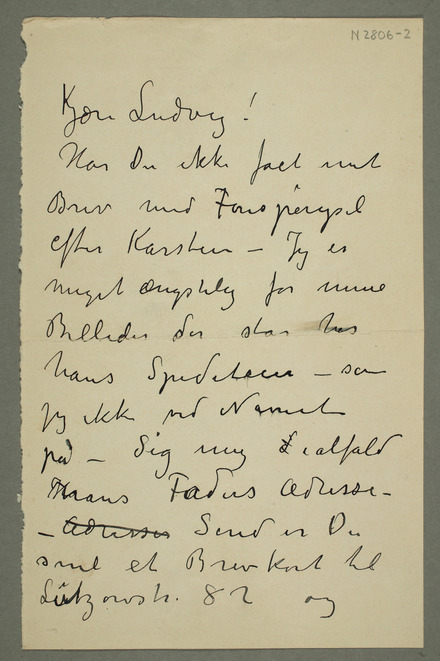 N 2806-2
Kjære Ludvig!
Har Du ikke faet mit
Brev med Forespørgsel
efter Karsten – Jeg er
meget ængstelig for mine
Billeder der star hos
hans Spediteur – som
jeg ikke ved Navnet
på – Sig mig ialfald
Hans Faders Adresse –
– Adresse Send er Du
snil et Brevkort til
Lützowstr. 82 og